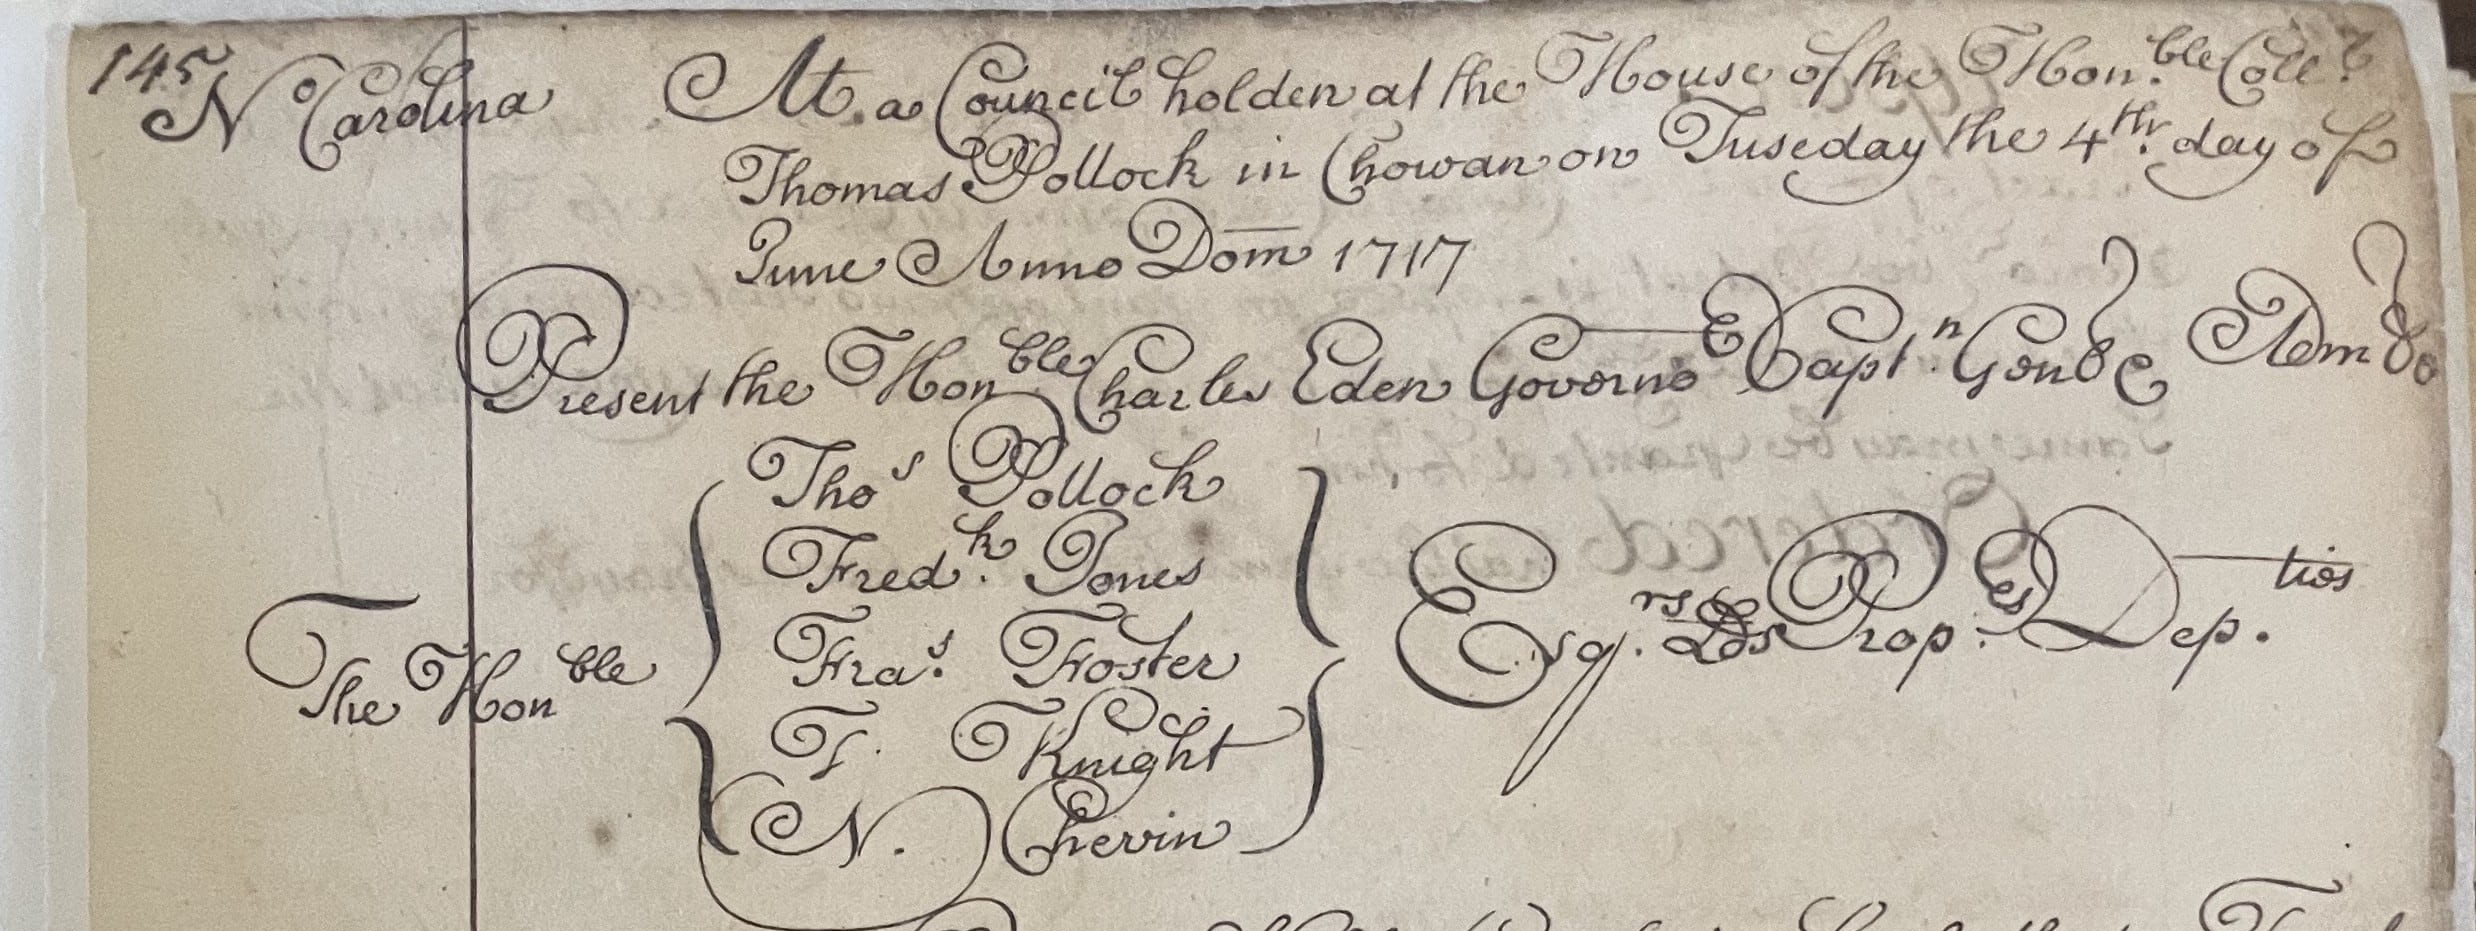 145
No Carolina At a Council holden at the House of the Honble Coll:
Thomas Pollock in Chowan on Tuseday the 4th day of
June Anno Dom 1717
Present the Honble Charles Eden Governo Captn Gen & Adm
Thos Pollock
Fredk. Jones
Fras. Foster
The Honble Esqrs. Lds Prop.es Dep.ties
T. Knight
N. Chevin